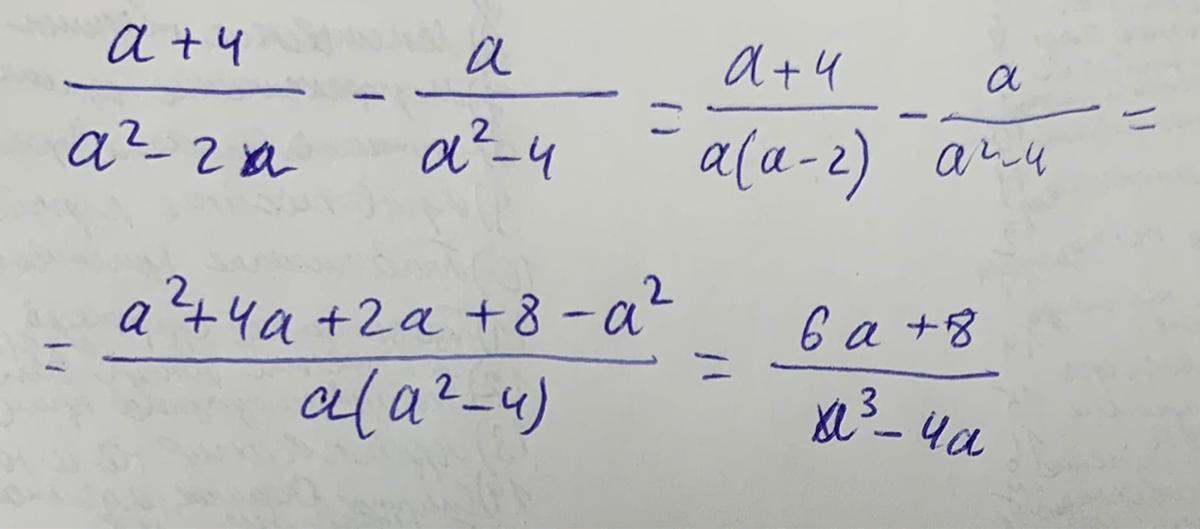 (a+4)/(a²-2a) - a/(a²-4) = (a+4)/(a(a-2)) - a/(a²-4) =
= (a²+4a+2a+8-a²)/(a(a²-4)) = (6a+8)/(a³-4a)